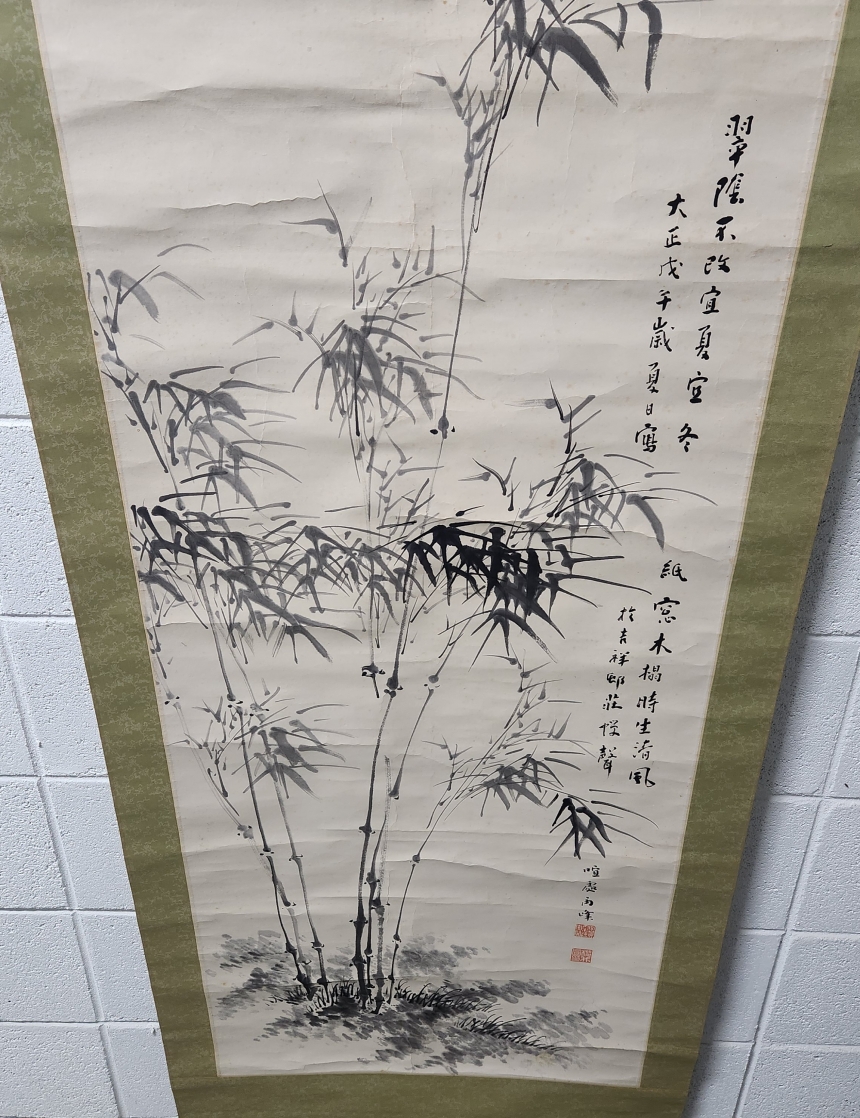 翠陰不改宜夏宜冬
紙窓木榻時生清風
大正戊午歳夏日寫
於吉祥邨莊蟬聲
喧處